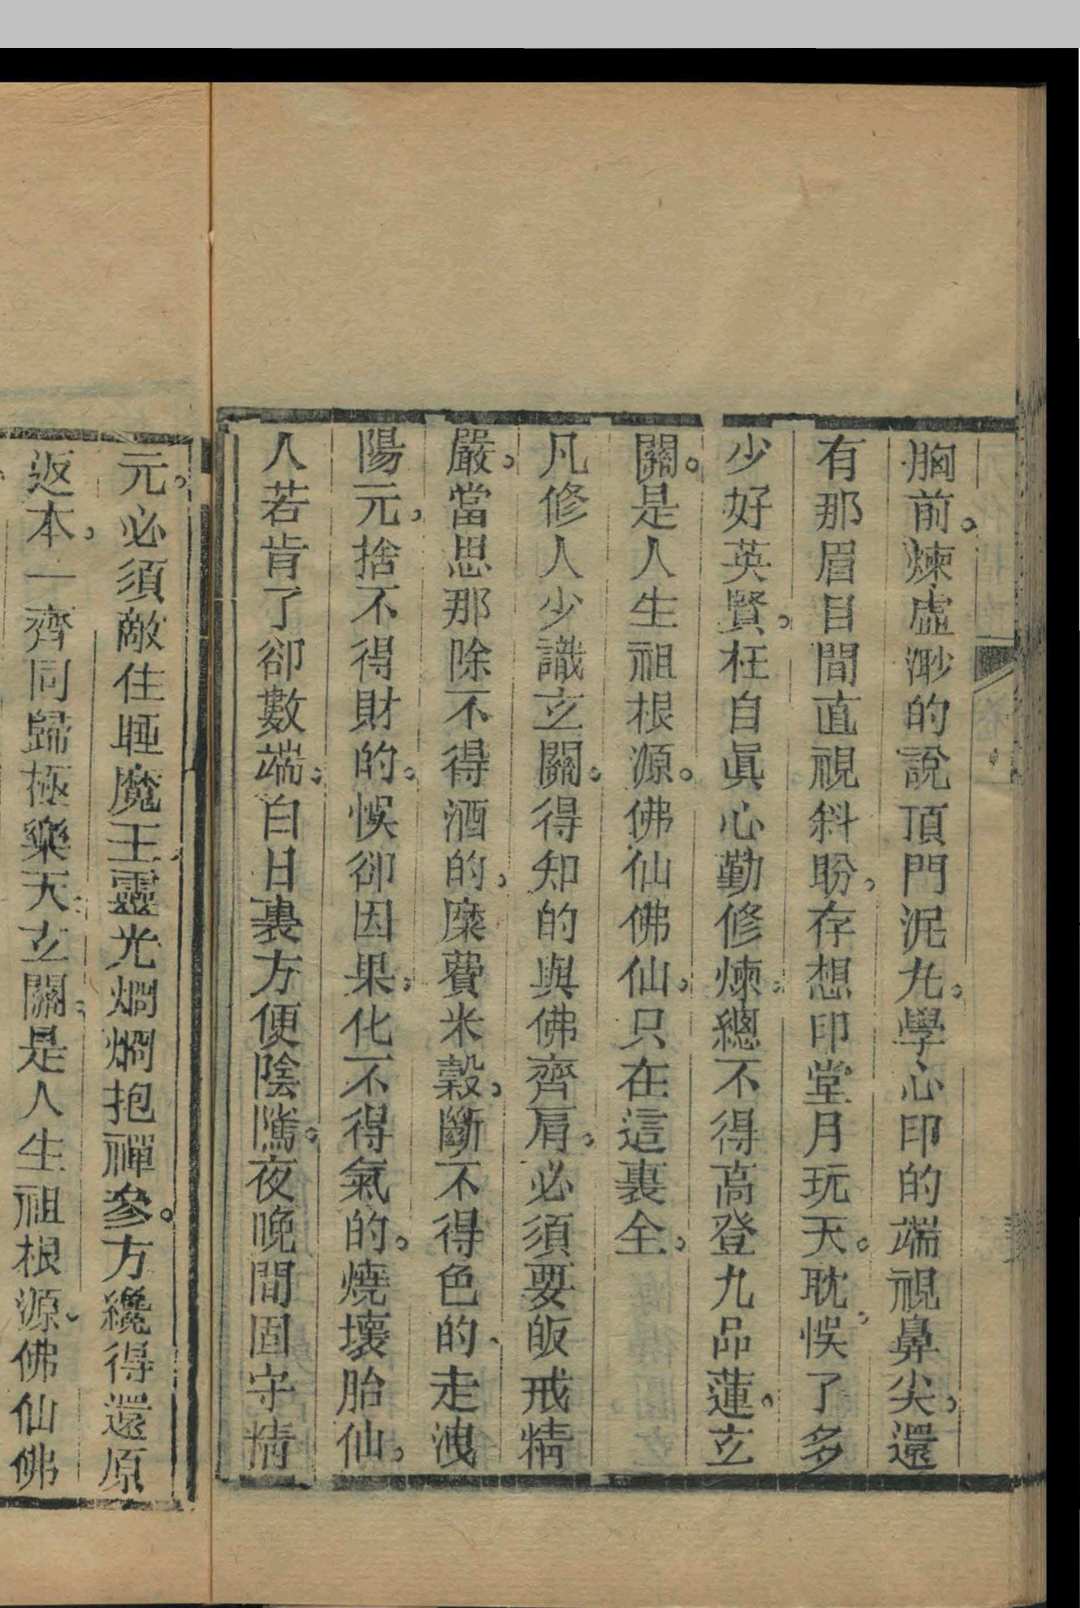 胸前。煉虛渺的說頂門泥丸。學心印的端視鼻尖。還
有那眉目間直視斜盼。存想印堂月玩天。耽悞了多
少好英賢。枉自眞心勤修煉。總不得高登九品蓮。玄
關。是人生祖根源。佛仙佛仙。只在這裏全。
凡修人少識玄關。得知的與佛齊肩。必須要皈戒精
嚴。當思那除不得酒的。糜費米穀。斷不得色的。走洩
陽元。捨不得財的。悞卻因果。化不得氣的。燒壞胎仙。
人若肯了卻數端。白日裏方便陰隲。夜晚間固守情
元。必須敵住睡魔王。靈光燗燗抱禪參。方纔得還原
返本。一齊同歸極樂天。玄關。是人生祖根源。佛仙佛